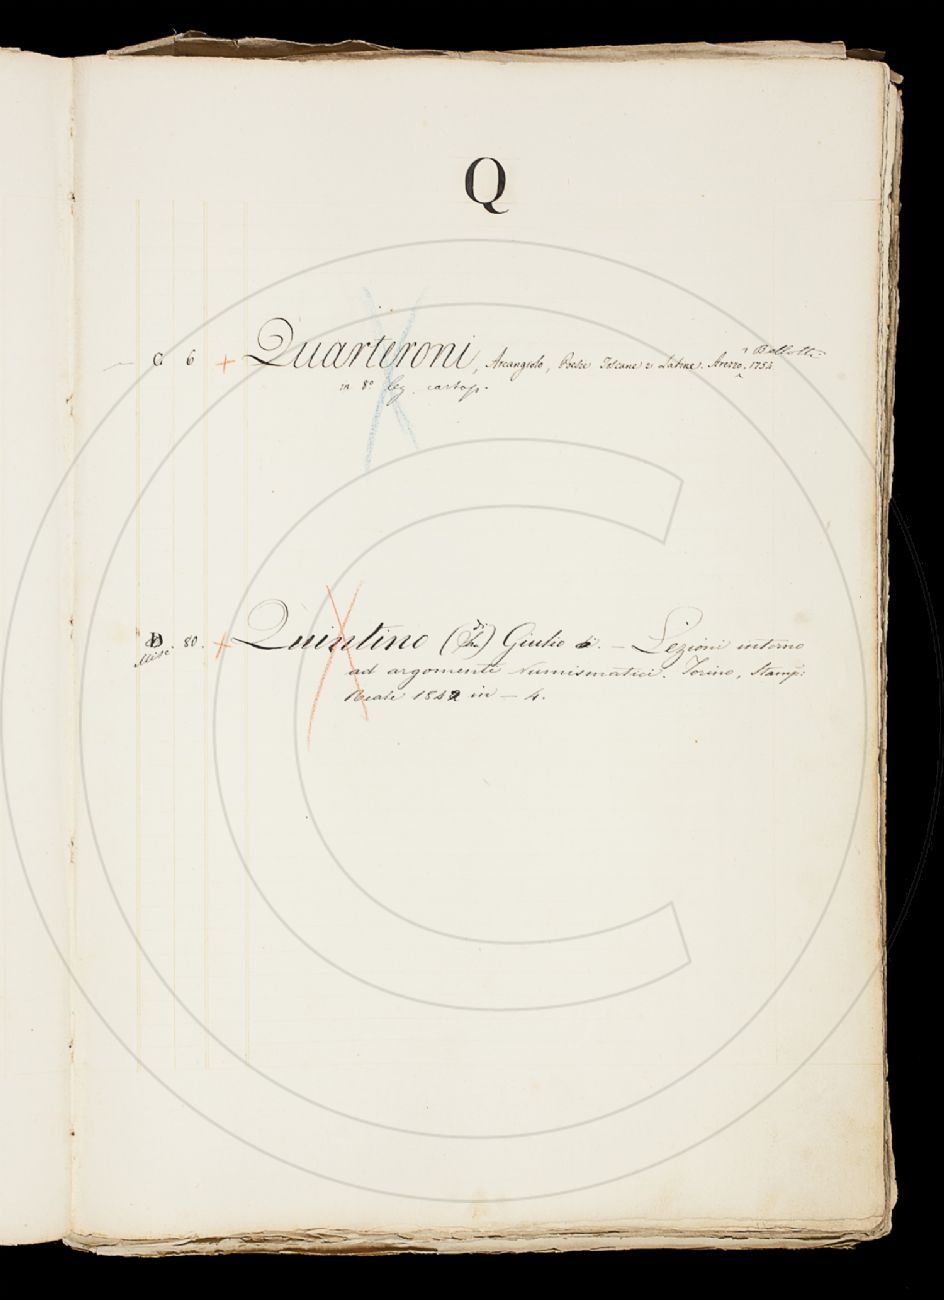 Q
Bellotti
G 6 + Quarteroni, Arcangiolo, Poesie Toscane e Latine. Arezzo, 1754
in 8º leg. cartap.
D 80. + Quintino (di) Giulio. – Lezioni intorno
Misc.
ad argomenti Numismatici. Torino, Stamp:
Reale 1842 in – 4.